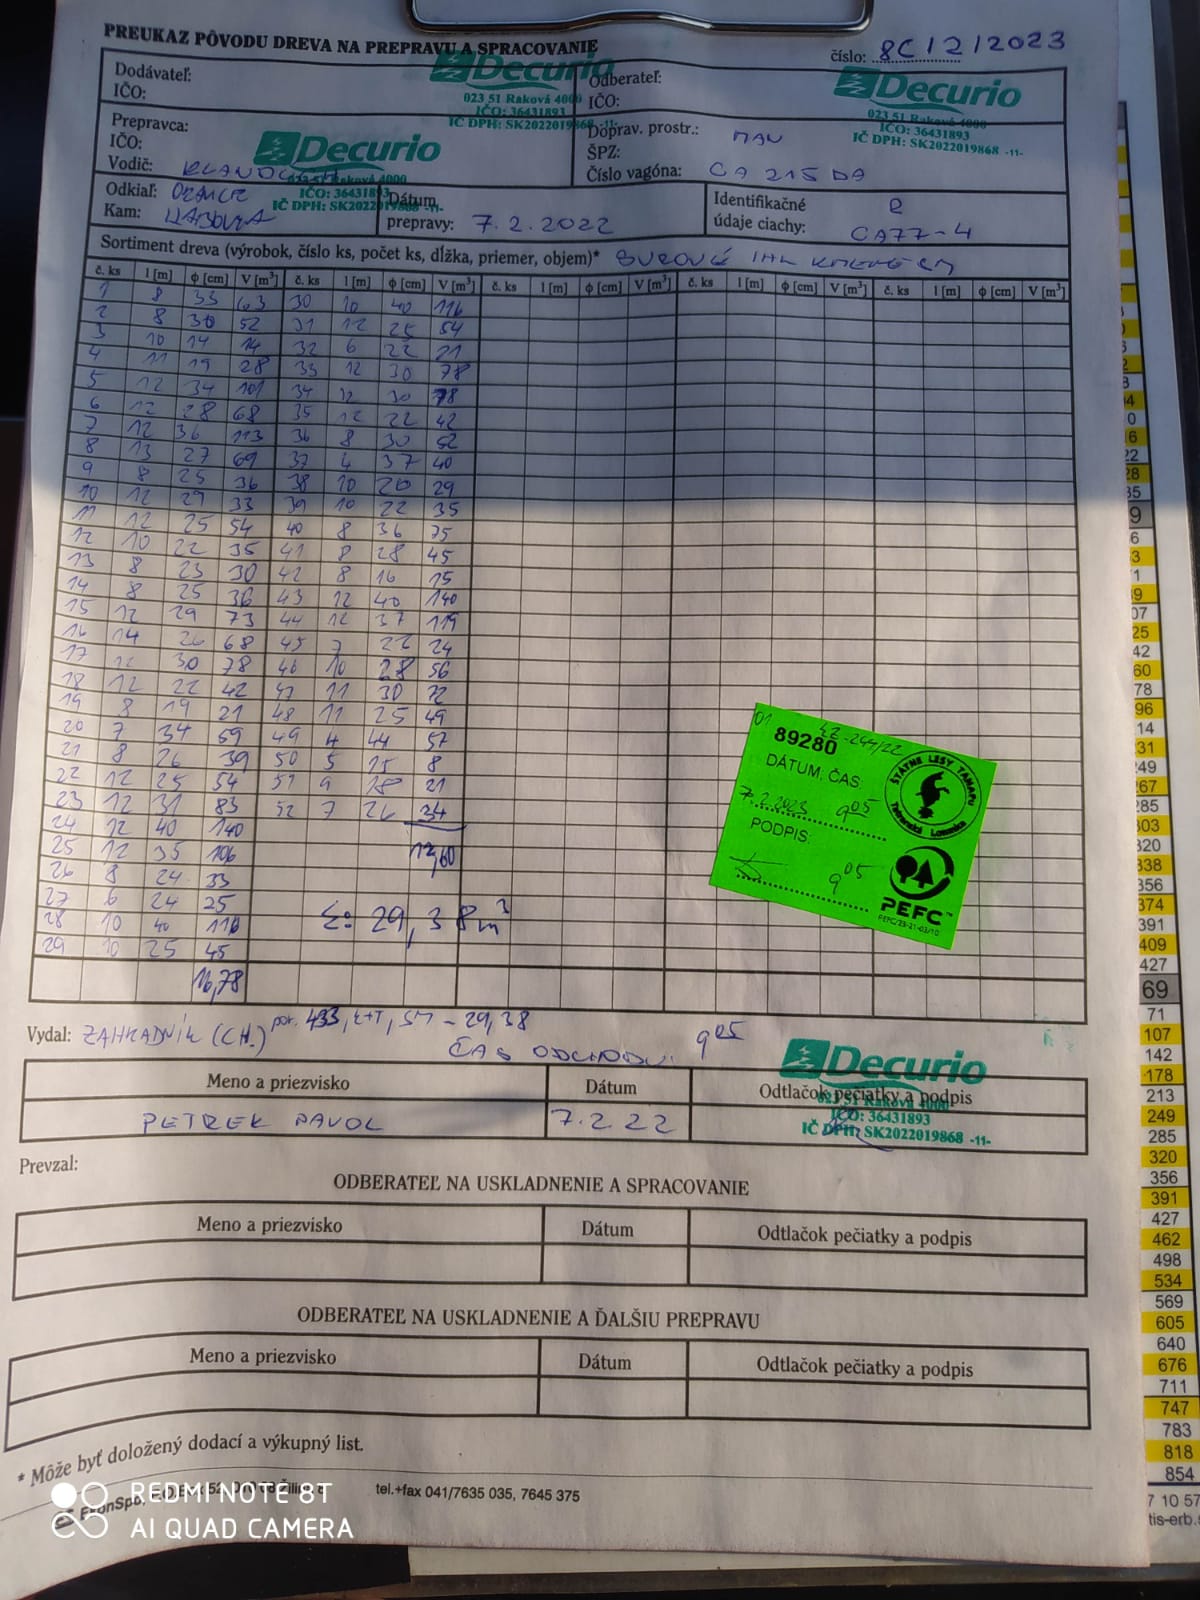 PREUKAZ PÔVODU DREVA NA PREPRAVU A SPRACOVANIE
číslo: 8C/2/2023
Dodávateľ:
IČO:
Decurio
023 51 Raková 4000
IČO: 36431893
IČ DPH: SK2022019868 -11-
Odberateľ:
IČO:
Decurio
023 51 Raková 4000
IČO: 36431893
IČ DPH: SK2022019868 -11-
Prepravca:
IČO:
Vodič:
Decurio
023 51 Raková 4000
IČO: 36431893
IČ DPH: SK2022019868 -11-
Doprav. prostr.: MAN
ŠPZ:
Číslo vagóna: CA 215 DA
Odkiaľ:
Kam:
Dátum
prepravy: 7.2.2022
Identifikačné
údaje ciachy: CA77-4
Sortiment dreva (výrobok, číslo ks, počet ks, dĺžka, priemer, objem)*
č. ks l [m] ϕ [cm] V [m³] č. ks l [m] ϕ [cm] V [m³] č. ks l [m] ϕ [cm] V [m³] č. ks l [m] ϕ [cm] V [m³] č. ks l [m] ϕ [cm] V [m³]
1 8 33 63 30 10 40 116
2 8 30 52 31 12 25 54
3 10 14 14 32 6 22 21
4 11 19 28 33 12 30 78
5 12 34 101 34 12 30 78
6 12 28 68 35 12 22 42
7 12 36 113 36 8 30 52
8 13 27 69 37 4 37 40
9 8 25 36 38 10 20 29
10 12 29 33 39 10 22 35
11 12 25 54 40 8 36 75
12 10 22 35 41 8 28 45
13 8 23 30 42 8 16 15
14 8 25 36 43 12 40 140
15 12 29 73 44 12 37 119
16 14 26 68 45 7 22 24
17 12 30 78 46 10 28 56
18 12 22 42 47 11 30 72
19 8 19 21 48 11 25 49
20 7 34 59 49 4 44 57
21 8 26 39 50 5 15 8
22 12 25 54 51 9 18 21
23 12 31 83 52 7 26 34
24 12 40 140
25 12 35 106 12,60
26 8 24 33
27 6 24 25
28 10 40 116 Σ: 29,38m³
29 10 25 45
16,78
01 42-244/22
89280
DÁTUM: ČAS:
7.2.2023 9 05
PODPIS:
9 05
ŠTÁTNE LESY TANAPU
Tatranská Lomnica
PEFC™
PEFC/23-21-03/10
Vydal: ZAHRADNÍK (CH.) por. 433, SM - 29,38
ČAS ODCHODU 9 05
Decurio
023 51 Raková 4000
IČO: 36431893
IČ DPH: SK2022019868 -11-
Meno a priezvisko Dátum Odtlačok pečiatky a podpis
PETREK PAVOL 7.2.22
Prevzal:
ODBERATEĽ NA USKLADNENIE A SPRACOVANIE
Meno a priezvisko Dátum Odtlačok pečiatky a podpis
ODBERATEĽ NA USKLADNENIE A ĎALŠIU PREPRAVU
Meno a priezvisko Dátum Odtlačok pečiatky a podpis
* Môže byť doložený dodací a výkupný list.
tel.+fax 041/7635 035, 7645 375
REDMI NOTE 8T
AI QUAD CAMERA
69
71
107
142
178
213
249
285
320
356
391
427
462
498
534
569
605
640
676
711
747
783
818
854